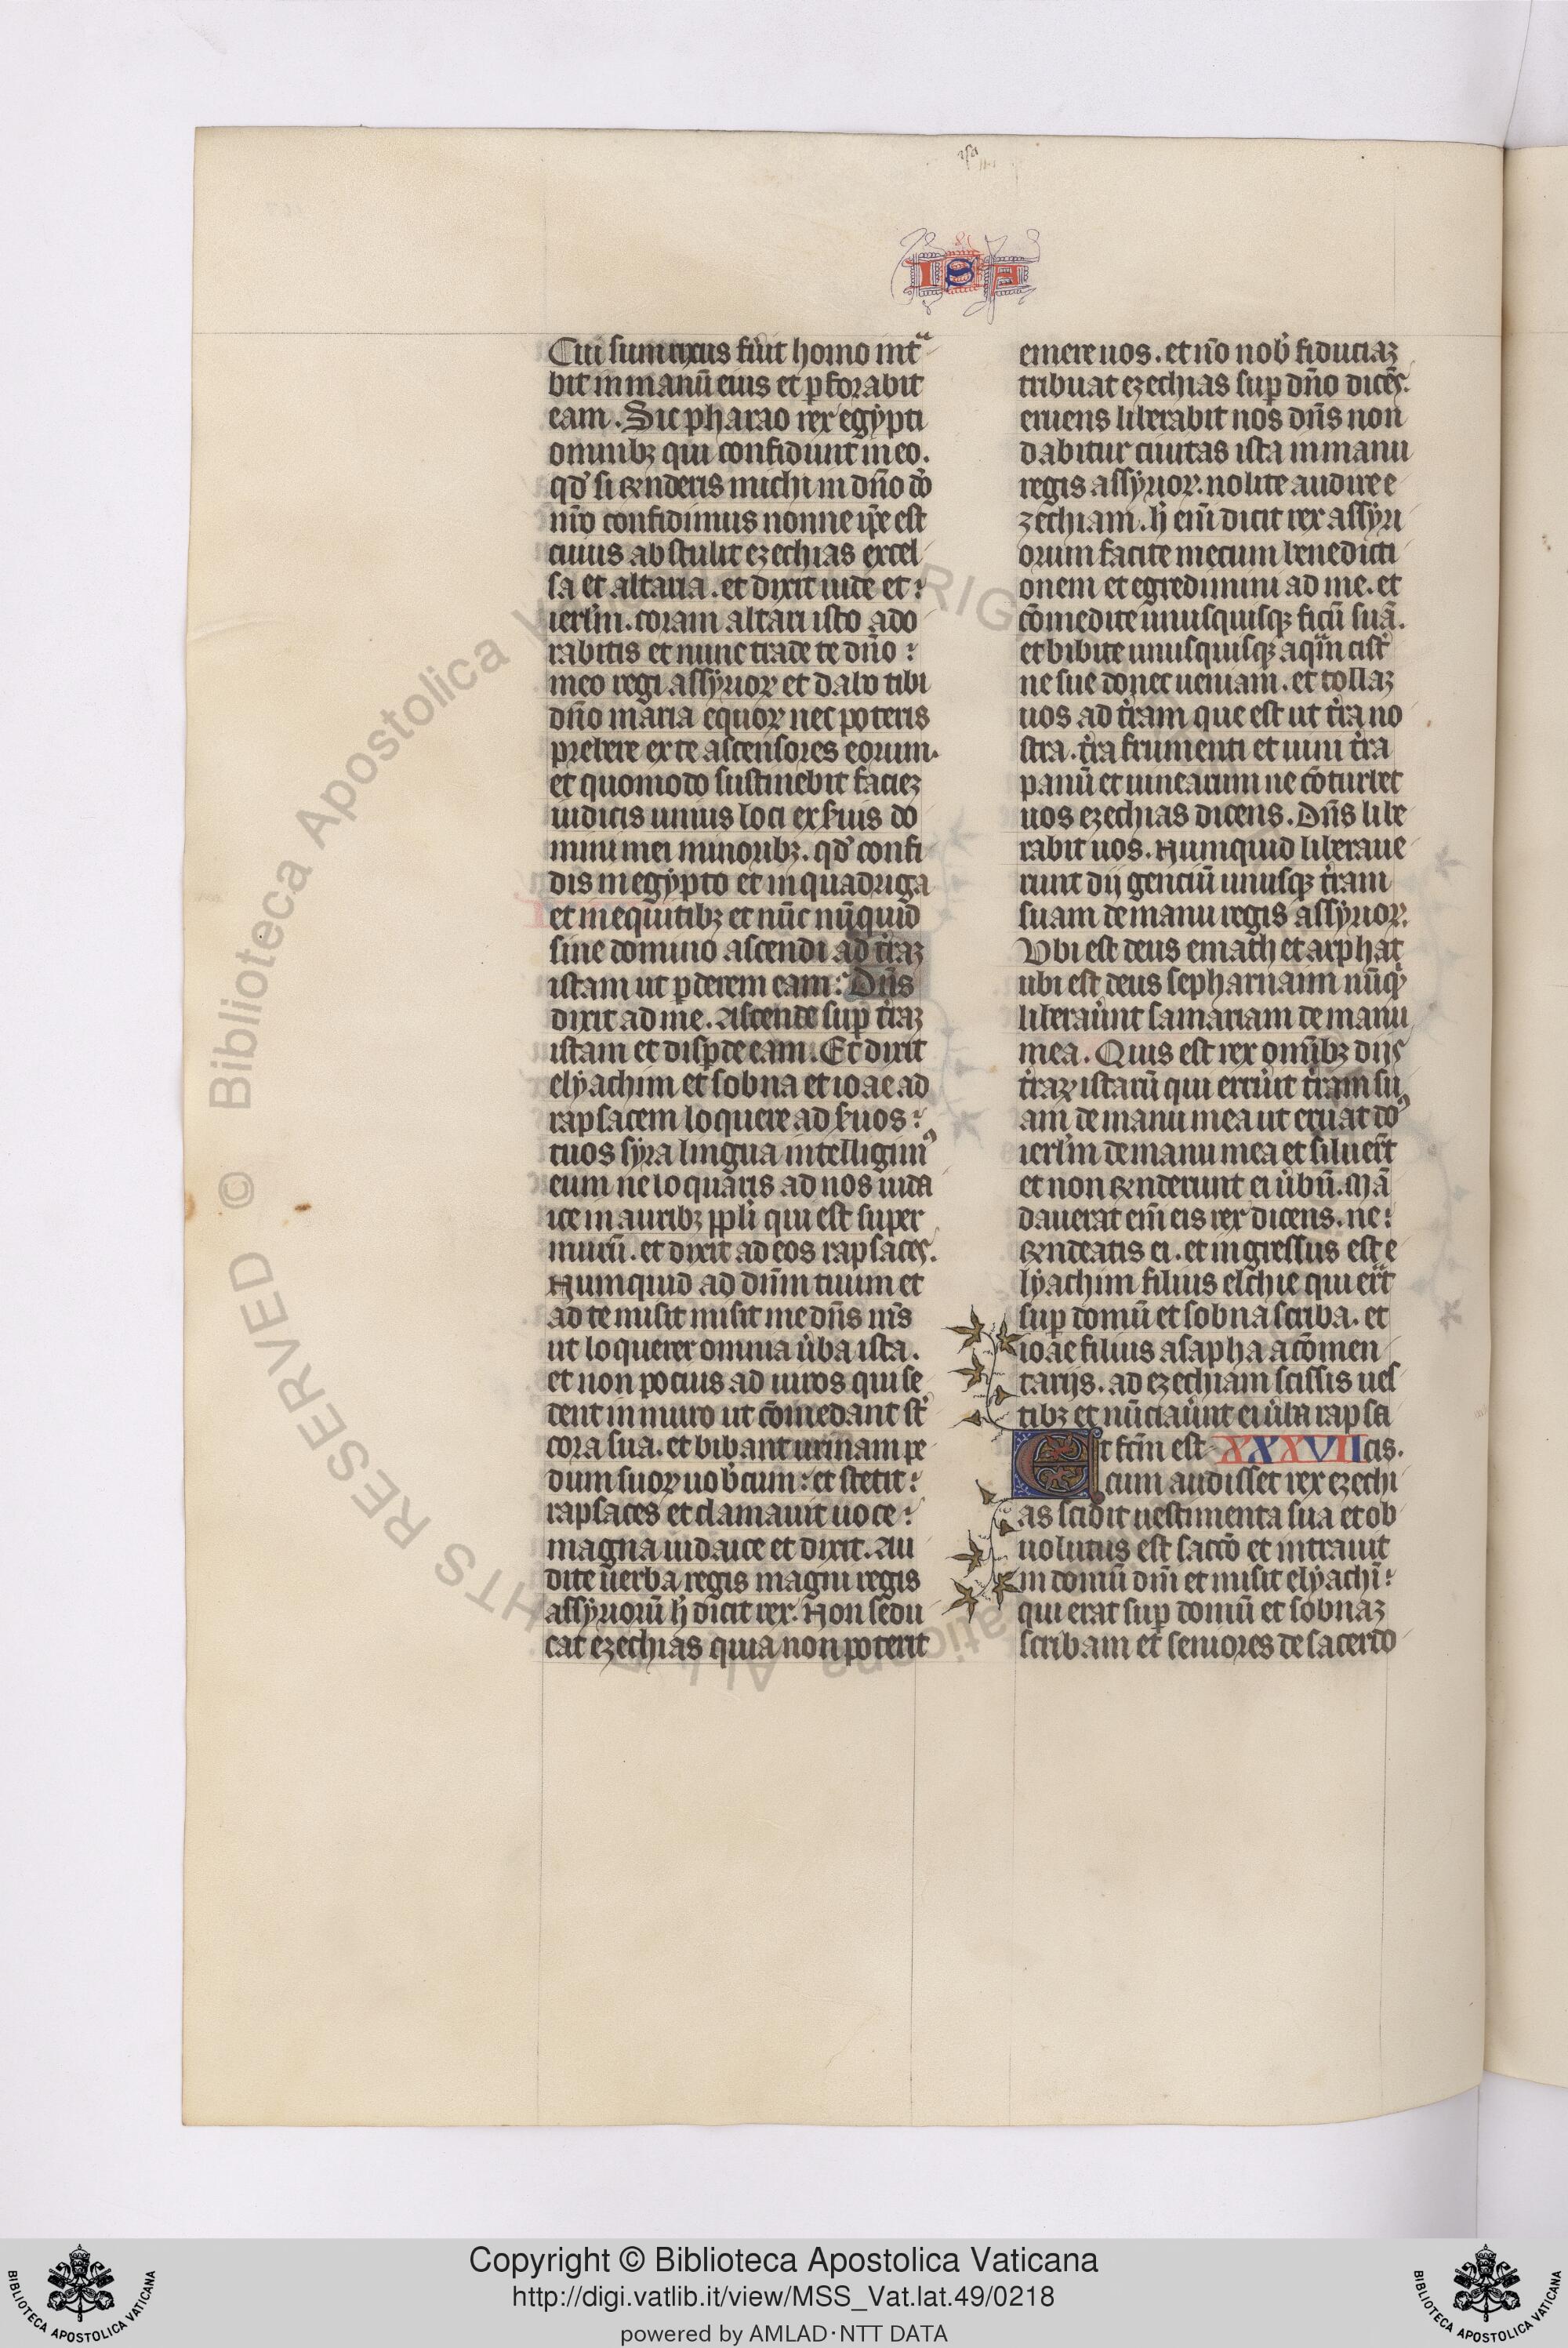 ISA
Cui si innixus fuit homo intᵃ
bit in manū eius et ꝑforabit
eam. Sic pharao rex egypti
omnibꝫ qui confidunt in eo.
qd' si rn̄deris michi in dn̄o dō
nr̄o confidimus nonne ip̄e est
cuius abstulit ezechias excel
sa et altaria. et dixit iude et
ierlm̄. coram altari isto ado
rabitis et nunc trade te dn̄o
meo regi assyrioꝝ et dabo tibi
duo milia equoꝝ nec poteris
prebere ex te ascensores eorum.
et quomodo sustinebit facieꝫ
iudicis unius loci ex s̄uis do
mini mei minoribꝫ. qd' confi
dis in egypto et in quadriga
et in equitibꝫ et nūc nūquid
sine domino ascendi ad t̄raꝫ
istam ut ꝑderem eam. Dn̄s
dixit ad me. Ascende sup̄ t̄raꝫ
istam et disꝑde eam. Et dixit
elyachim et sobna et ioae ad
rapsacem loquere ad s̄uos
tuos syra lingua intelligimꝰ
eum ne loquaris ad nos iuda
ice in auribꝫ pp̄li qui est super
murū. et dixit ad eos rapsaces.
Numquid ad dn̄m tuum et
ad te misit misit me dn̄s m̄s
ut loquerer omnia ūba ista.
et non pocius ad uiros qui se
dent in muro ut cōmedant st̄
cora sua. et bibant urinam pe
dum suoꝝ uob̄cum. et stetit
rapsaces et clamauit uoce
magna iudaice et dixit. Au
dite uerba regis magni regis
assyriorū h̄ dicit rex. Non sedu
cat ezechias quia non poterit
emere uos. et nō nob̄ fiduciaꝫ
tribuat ezechias sup̄ dn̄o dicēs.
eruens liberabit nos dn̄s non
dabitur ciuitas ista in manu
regis assyrioꝝ. nolite audire e
zechiam. h̄ eni̅ dicit rex assyri
orum facite mecum benedicti
onem et egredimini ad me. et
cōmedite unusquisqꝫ ficū suā.
et bibite unusquisqꝫ aqᵃm cist̄
ne sue donec ueniam. et tollaꝫ
uos ad t̄ram que est ut t̄ra no
stra. t̄ra frumenti et uini t̄ra
panū et uinearum ne cōturbet
uos ezechias dicens. Dn̄s libe
rabit uos. Numquid liberaue
runt dij genciū unusqꝫ t̄ram
suam de manu regis assyrioꝝ.
Vbi est deus emath et arphat
ubi est deus sepharuaim nūqᵈ
liberaūnt samariam de manu
mea. Quis est rex omībꝫ dijs
t̄raꝝ istarū qui eruīt t̄ram su
am de manu mea ut eruat dōꝰ
ierlm̄ de manu mea et siluer̄t
et non rn̄derunt ei ūbū. Mā
dauerat em̄ eis rex dicens. ne
rn̄deatis ei. et ingressus est e
lyachim filius elchie qui er̄t
sup̄ domū et sobna scriba. et
ioae filius asaph a a cōmen
tarijs. ad ezechiam scissis ues
tibꝫ et nūciaūnt ei ūba rapsa
Et fcm̄ est XXXVII cis.
cum audisset rex ezechi
as scidit uestimenta sua et ob
uolutus est sacco et intrauit
in domū dn̄i et misit elyachī
qui erat sup̄ domū et sobnaꝫ
scribam et seniores de sacerdo
RESERVED © Biblioteca Apostolica Vaticana ALL RIGHTS
Copyright © Biblioteca Apostolica Vaticana
http://digi.vatlib.it/view/MSS_Vat.lat.49/0218
powered by AMLAD·NTT DATA
BIBLIOTECA APOSTOLICA VATICANA
BIBLIOTECA APOSTOLICA VATICANA